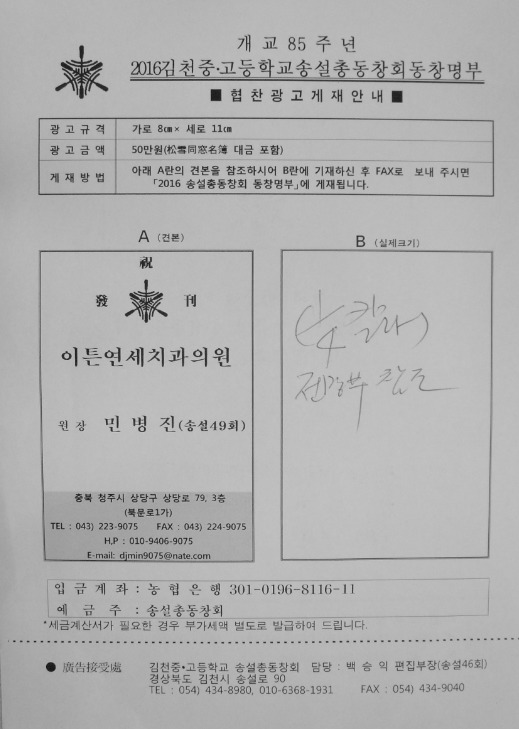 개 교 85 주 년
2016김천중·고등학교송설총동창회동창명부
■ 협 찬 광 고 게 재 안 내 ■
광 고 규 격 가로 8㎝× 세로 11㎝
광 고 금 액 50만원(松雪同窓名簿 대금 포함)
게 재 방 법 아래 A란의 견본을 참조하시어 B란에 기재하신 후 FAX로 보내 주시면
「2016 송설총동창회 동창명부」에 게재됩니다.
A (견본)
祝
發 刊
이튼연세치과의원
원 장 민 병 진(송설49회)
충북 청주시 상당구 상당로 79, 3층
(북문로1가)
TEL : 043) 223-9075 FAX : 043) 224-9075
H,P : 010-9406-9075
E-mail: djmin9075@nate.com
B (실제크기)
(1/4 칼라)
전강부 참조
입 금 계 좌 : 농 협 은 행 301-0196-8116-11
예 금 주 : 송설총동창회
*세금계산서가 필요한 경우 부가세액 별도로 발급하여 드립니다.
● 廣告接受處 김천중·고등학교 송설총동창회 담당 : 백 승 익 편집부장(송설46회)
경상북도 김천시 송설로 90
TEL : 054) 434-8980, 010-6368-1931 FAX : 054) 434-9040